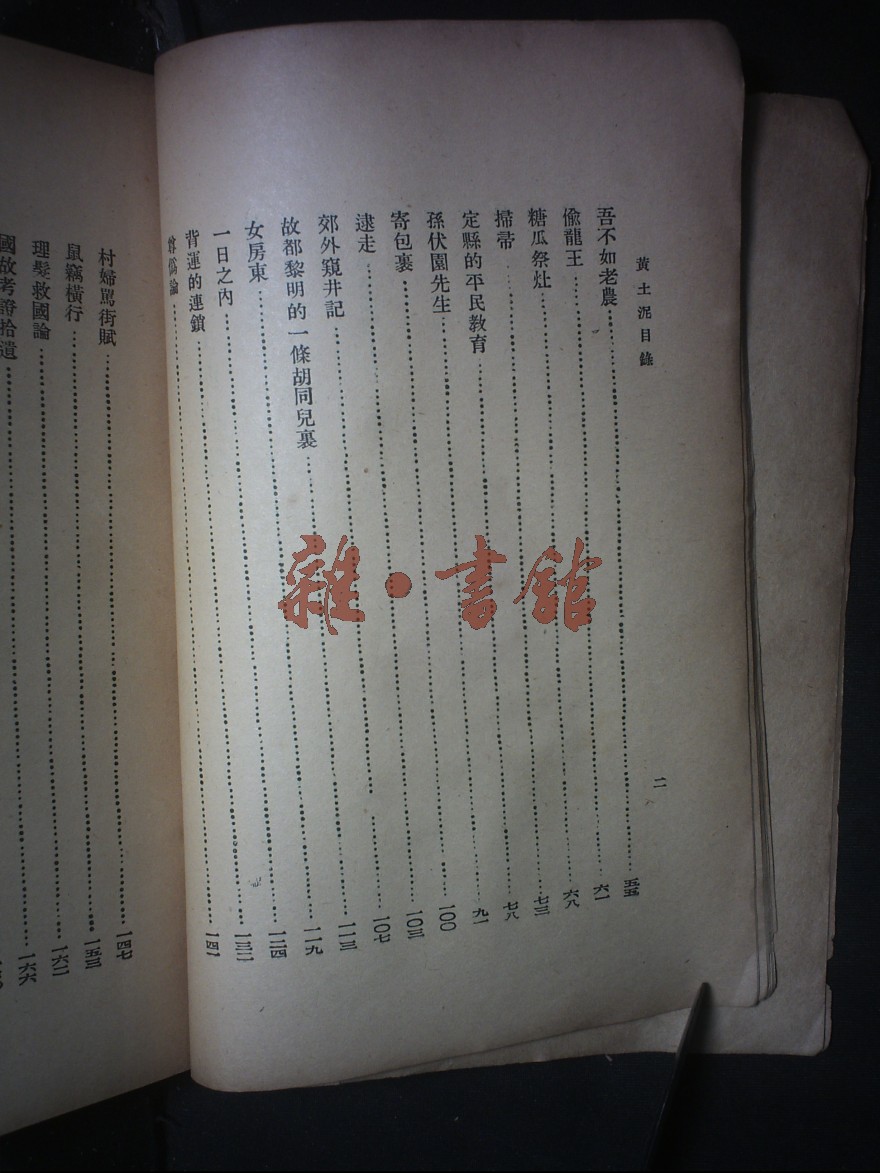 黃土泥目錄 二
吾不如老農 五五
偷龍王 六一
糖瓜祭灶 六八
掃帚 七三
定縣的平民教育 七八
孫伏園先生 九一
寄包裹 一〇〇
逮走 一〇三
郊外窺井記 一〇七
故都黎明的一條胡同兒裏 一一三
女房東 一一九
一日之內 一二四
背運的連鎖 一三二
論 一四一
村婦罵街賦 一四七
鼠竊橫行 一五三
理髮救國論 一六二
國故考證拾遺 一六六
雜·書館